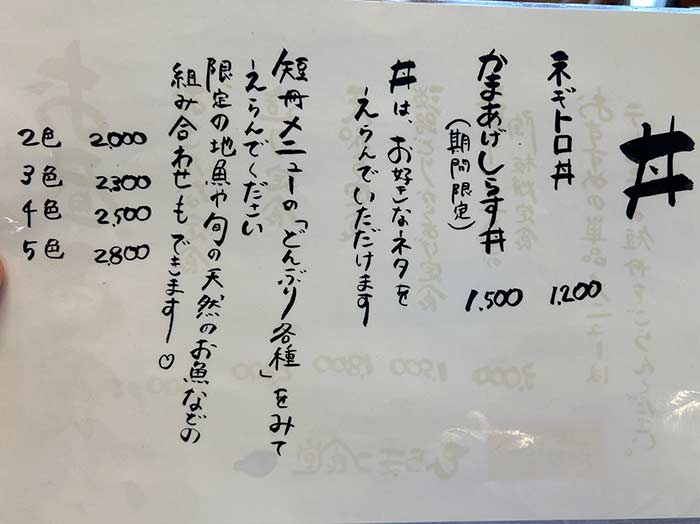 丼
ネギトロ丼 1,200
かまあげしらす丼 1,500
(期間限定)
丼は、お好きなネタを
えらんでいただけます
短冊メニューの「どんぶり各種」をみて
えらんでください
限定の地魚や旬の天然のお魚などの
組み合わせもできます♡
2色 2,000
3色 2,300
4色 2,500
5色 2,800